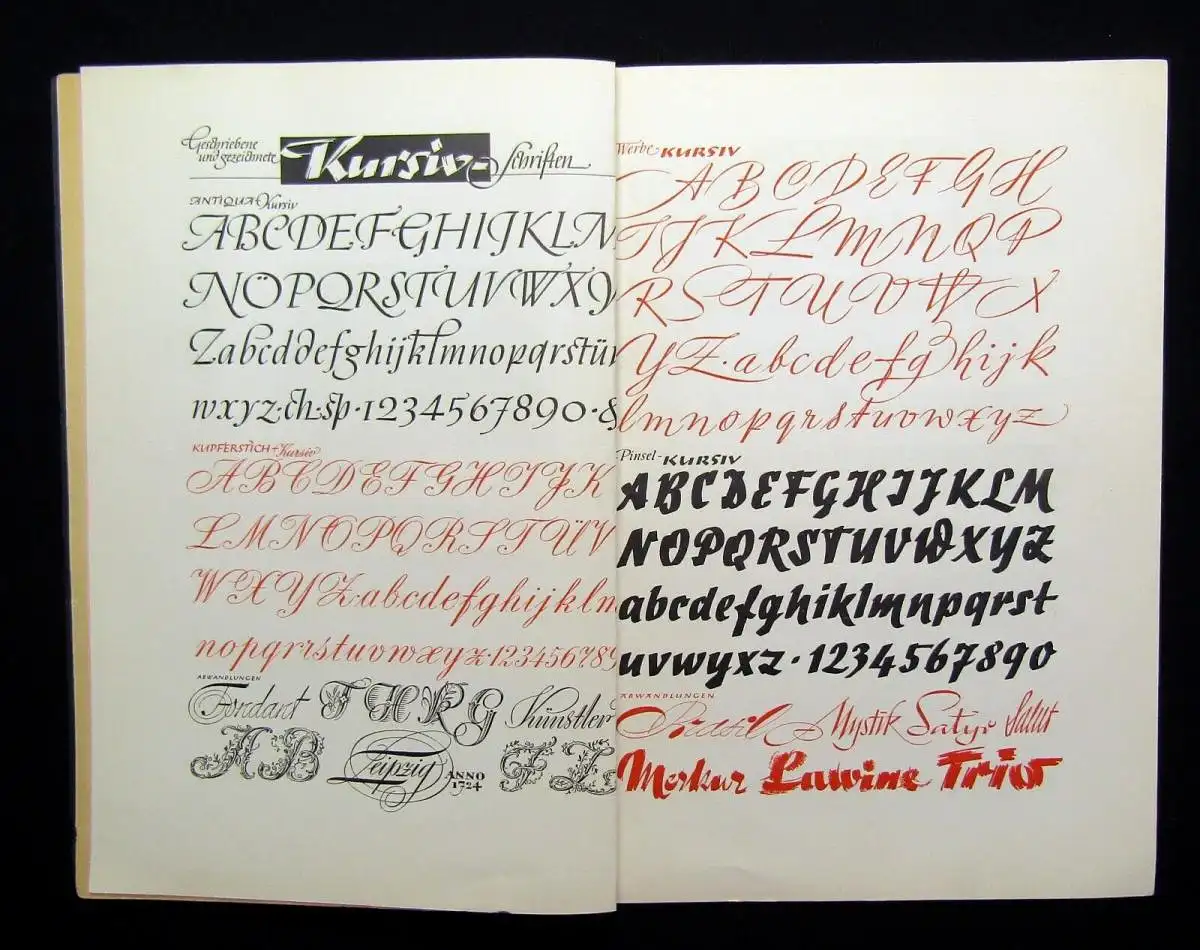 Geschriebene
und gezeichnete Kursiv-Schriften
ANTIQUA-Kursiv
ABCDEFGHIJKLM
NÖPQRSTUVWXY
Zabcddefghijklmnopqrstü
wxyz·ch·sp·1234567890·&
KUPFERSTICH-Kursiv
ABCDEFGHIJK
LMNOPQRSTÜV
WXYZ·abcdefghijklm
nopqrrstuvwxyz·123456789
ABWANDLUNGEN
Fondant THRG Künstler
AB Leipzig ANNO
1724
Werbe-KURSIV
ABCDEFGH
IJKLMNQP
RSTUVWX
YZ·abcdefghijk
lmnopqrstuvwxyz
Pinsel-KURSIV
ABCDEFGHIJKLM
NOPQRSTUVWXYZ
abcdefghiklmnpqrst
uvwyxz·1234567890
ABWANDLUNGEN
Mystik Satyr Salut
Merkur Lawine Trio